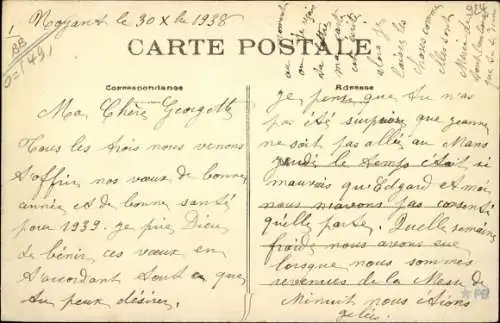 Noyant le 30 Xbre 1938
CARTE POSTALE
Correspondance
Adresse
Ma Chère Georgette
Tous les trois nous venons
t'offrir nos vœux de bonne
année et de bonne santé
pour 1939. je prie Dieu
de bénir ces vœux en
t'accordant tout ce que
tu peux désirer.
je pense que tu n'as
pas été surprise que jeanne
ne soit pas allée au Mans
jeudi le temps était si
mauvais qu'Edgard et moi
nous n'avons pas consenti
qu'elle parte. Quelle semaine
froide nous avons eue
lorsque nous sommes
revenues de la Messe de
Minuit nous étions
gelées.
alors je
laisse les
choses comme
elles sont
PB